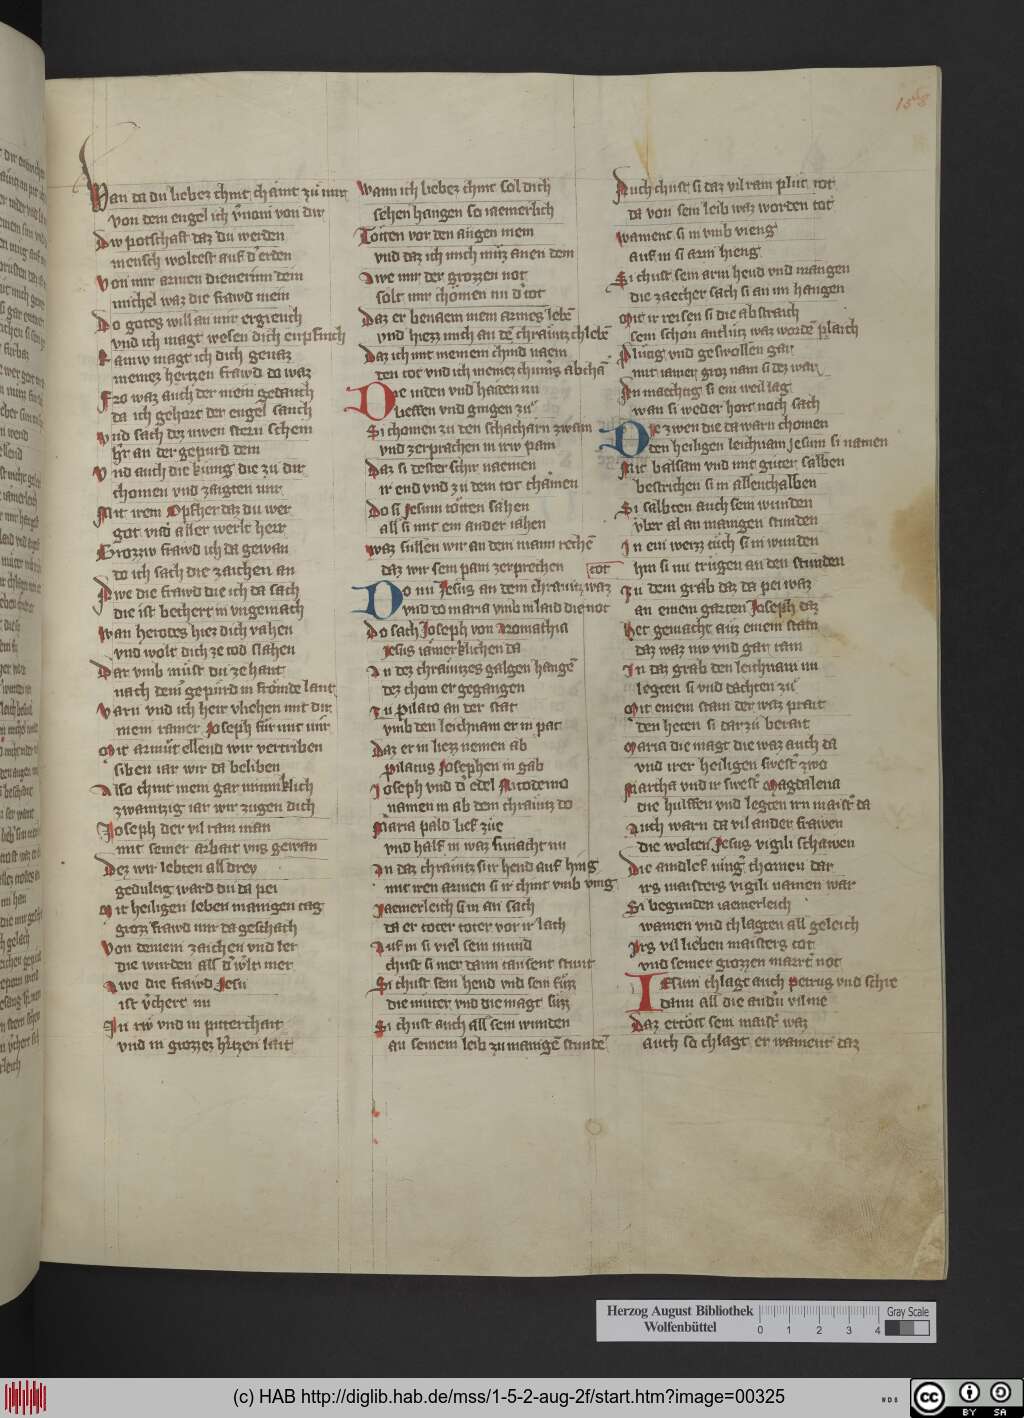 158
Wan da du liebez chint chaint zu mir
von dem engel ich v̓nom von dir
Div potschaft daz du werden
mensch woltest auf d̓ erden
Von mir armen dienerinn dein
michel waz die frawd mein
Do gotes will an mir ergiench
vnd ich magt wesen dich enpfiench
Kaum magt ich dich genaz
meinez hertzen frawd da waz
Fro waz auch der mein gedanch
da ich gehort der engel sanch
Vnd sach dez niwen stern schein
h̓r an der gepurd dein
Vnd auch die kunig die zu dir
chomen vnd zaigten mir
Mit irem Opfher daz du wer
got vnd aller werlt herr
Grozziv frawd ich da gewan
do ich sach die zaichen an
Awe die frawd die ich da sach
die ist bechert in vngemach
Wan herodes hiez dich vahen
vnd wolt dich ze tod slahen
Dar vmb must du ze hant
nach deinē gepurd in fromde lant
Varn vnd ich heir vliehen mit dir
mein ramer Joseph fur mit mir
Mit armut ellend wir vertriben
siben iar wir da beliben
Also chint mein gar minniklich
zwaintzig iar wir zugen dich
Joseph der vil ram man
mit seiner arbait vns gewan
Dez wir lebten all drey
gedultig ward du da pei
Mit heiligen leben manigen tag
grozz frawd mir da geschach
Von deinem zaichen vnd ler
die wurden all d̓ w̓lt mer
Awe die frawd Jesu
ist v̓chert nu
In riw vnd in pitterchait
vnd in grozzez h̓rtzen lait
Wann ich liebez chint sol dich
sehen hangen so iaemerlich
Toiten vor den augen mein
vnd daz ich mich muz anen dein
Awe mir der grozzen not
solt mir chomen nu d̓ tot
Daz er benaem mein armes lebē
vnd hiezz mich an dē chrawtz chlebē
Daz ich mit meinem chind naem
den tot vnd ich meinez chumis abchā
Die iuden vnd haiden nu
lieffen vnd gingen zu
Si chomen zu den schacharn zwain
vnd zerprachen in irw pain
Daz si dester schir naemen
ir end vnd zu dem tot chamen
Do si Jesum toitten sahen
all si mit ein ander iahen
Waz sullen wir an dem mann rechē
daz wir sein pain zerprechen
tot
Do nu Jesus an dem chrawtz waz
vnd do maria vmb in laid die not
Do sach Joseph von Aromathia
Jesus iamerklichen da
An dez chrawtzes galgen hangē
dez chom er gegangen
Zu pilato an der stat
vmb den leichnam er in pat
Daz er in liezz nemen ab
pilatus Josephen in gab
Joseph vnd d̓ edel Nicodemo
namen in ab dem chrawtz do
Maria pald lief zue
vnd half in waz si macht nu
An daz chrawtz sur hend auf hing
mit iren armen si ir chint vmb ving
Jaemerleich si in an sach
da er toter toter vor ir lach
Auf in si viel sein mund
chust si mer dann tausent stunt
Si chust sein hend vnd sein fuzz
die muter vnd die magt suzz
Si chust auch all sein wunden
an seinem leib zu manigē stundē
Auch chust si daz vil ram plut rot
da von sein leib waz worden tot
Wament si in vmb vieng
auf in si arm hieng
Si chust sein arm hend vnd wangen
die zaecher sach si an im hangen
Mit ir reisen si die ab strauch
sein schon antlutz waz wordē plaich
Pluug vnd geswollen gar
mit iamer groz nam si dez war
In machtig si ein weil lag
wan si weder hort noch sach
Die zwen die da warn chomen
den heiligen leichnam Jesum si namen
Mit balsam vnd mit guter salben
bestrichen si in allenthalben
Si salbten auch sein wunden
vber al an manigen stunden
In ein weizz tuch si in wunden
hin si nu trugen an den stunden
Zu dem grab daz da pei waz
an einem garten Joseph daz
Het gemacht auz einem stain
daz waz niw vnd gar rain
In daz grab den leichnam nu
legten si vnd dachten zu
Mit einem stain der waz prait
den heten si dar zu berait
Maria die magt die waz auch da
vnd irer heiligen swest̓ zwo
Martha vnd ir swest̓ Magdalena
die hulffen vnd legten irn maist̓ da
Auch warn da vil ander frawen
die wolten Jesus vigili schawen
Die aindlef iung̓ chomen dar
irs maisters vigili namen war
Si begunden iaemerleich
wainen vnd chlagten all geleich
Irs vil lieben maisters tot
vnd seiner grozzen martt̓ not
Jesum chlagt auch Petrus vnd schre
dann all die and̓n vil me
Daz ertoss sein maist̓ waz
auch so chlagt er wament daz
Herzog August Bibliothek
Wolfenbüttel
0 1 2 3 4
Gray Scale
(c) HAB http://diglib.hab.de/mss/1-5-2-aug-2f/start.htm?image=00325
WDB
CC BY SA